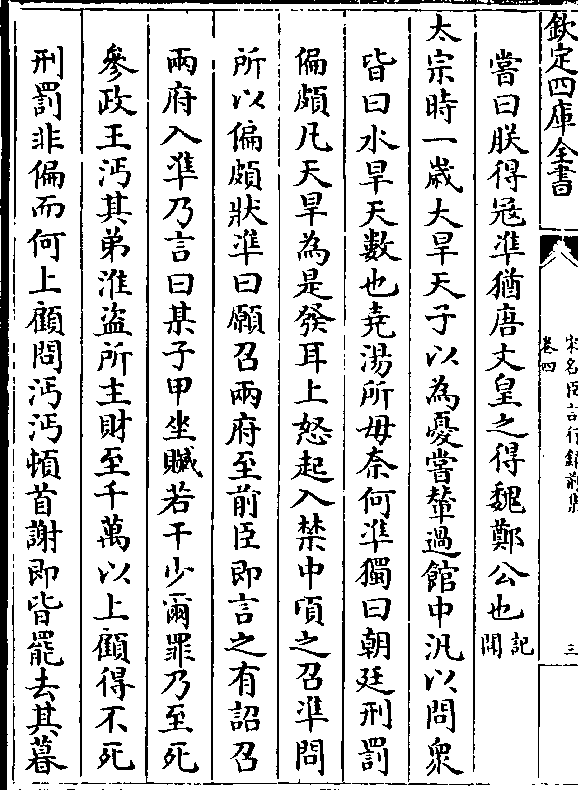 欽定四庫全書
宋名臣言行錄前集
卷四
三
嘗曰朕得冦凖猶唐文皇之得魏鄭公也記聞
太宗時一歲大旱天子以為憂嘗輦過館中汎以問衆
皆曰水旱天數也堯湯所毋奈何凖獨曰朝廷刑罰
偏頗凡天旱為是發耳上怒起入禁中頃之召凖問
所以偏頗狀凖曰願召兩府至前臣即言之有詔召
兩府入凖乃言曰某子甲坐贓若干少爾罪乃至死
參政王沔其弟淮盜所主財至千萬以上顧得不死
刑罰非偏而何上顧問沔沔頓首謝即皆罷去其暮